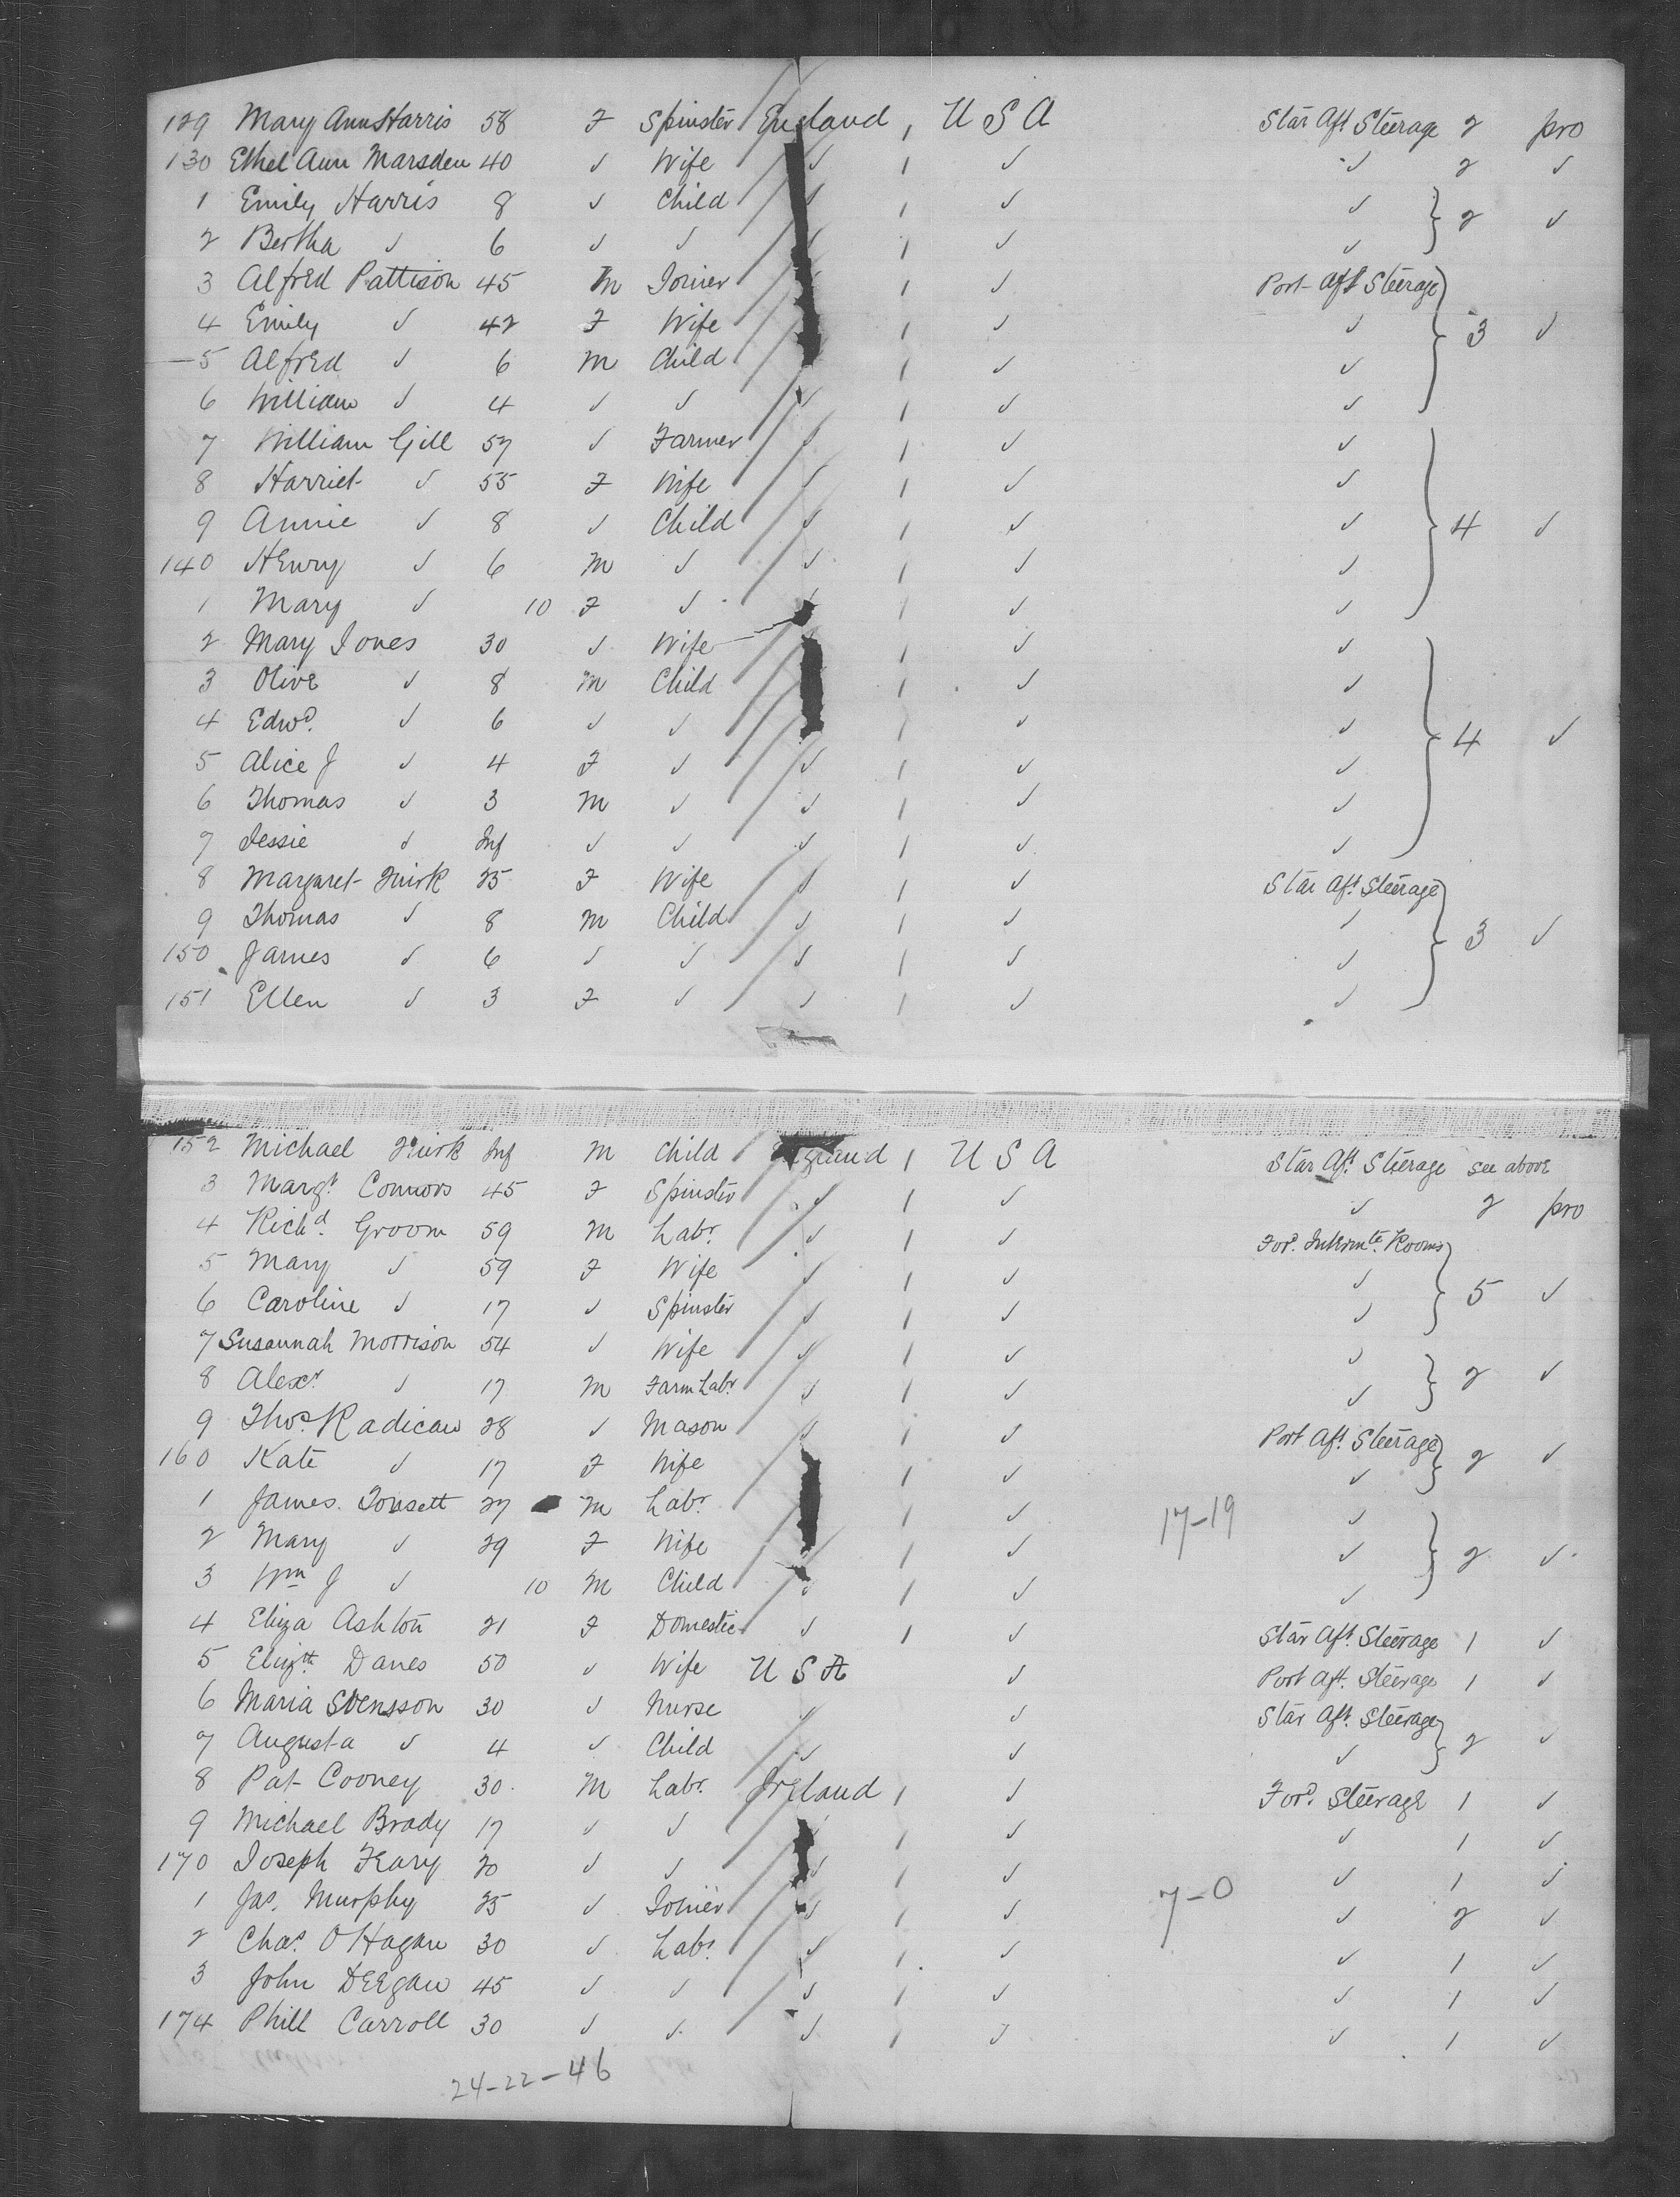 129 Mary Ann Harris 58 F Spinster England 1 U S A Star Aft Steerage 2 pro
130 Ethel Ann Marsden 40 ✓ Wife ✓ 1 ✓ ✓ 2 ✓
1 Emily Harris 8 ✓ Child ✓ 1 ✓ ✓ 2 ✓
2 Bertha ✓ 6 ✓ ✓ ✓ 1 ✓ ✓
3 Alfred Pattison 45 M Joiner 1 ✓ Port Aft Steerage
4 Emily ✓ 42 F Wife 1 ✓ ✓ 3 ✓
5 Alfred ✓ 6 M Child 1 ✓ ✓
6 William ✓ 4 ✓ ✓ ✓ 1 ✓ ✓
7 William Gill 57 ✓ Farmer ✓ 1 ✓ ✓
8 Harriet ✓ 55 F Wife ✓ 1 ✓ ✓
9 Annie ✓ 8 ✓ Child ✓ 1 ✓ ✓ 4 ✓
140 Henry ✓ 6 M ✓ ✓ 1 ✓ ✓
1 Mary ✓ 10 F ✓ 1 ✓ ✓
2 Mary Jones 30 ✓ Wife 1 ✓ ✓
3 Olive ✓ 8 M Child 1 ✓ ✓
4 Edwd. ✓ 6 ✓ ✓ 1 ✓ ✓ 4 ✓
5 Alice J ✓ 4 F ✓ ✓ 1 ✓ ✓
6 Thomas ✓ 3 M ✓ ✓ 1 ✓ ✓
7 Jessie ✓ Inf ✓ ✓ ✓ 1 ✓ ✓
8 Margaret Quirk 25 F Wife ✓ 1 ✓ Star Aft Steerage
9 Thomas ✓ 8 M Child ✓ 1 ✓ ✓ 3 ✓
150 James ✓ 6 ✓ ✓ ✓ 1 ✓ ✓
151 Ellen ✓ 3 F ✓ ✓ 1 ✓ ✓
152 Michael Quirk Inf M Child England 1 U S A Star Aft Steerage see above
3 Margt. Connors 45 F Spinster ✓ 1 ✓ ✓ 2 pro
4 Richd. Groom 59 M Labr. ✓ 1 ✓ Ford. Intermte. Rooms
5 Mary ✓ 59 F Wife ✓ 1 ✓ ✓ 5 ✓
6 Caroline ✓ 17 ✓ Spinster ✓ 1 ✓ ✓
7 Susannah Morrison 54 ✓ Wife ✓ 1 ✓ ✓ 2 ✓
8 Alexr. ✓ 17 M Farm Labr ✓ 1 ✓ ✓
9 Thos. Radican 28 ✓ Mason ✓ 1 ✓ Port Aft Steerage 2 ✓
160 Kate ✓ 17 F Wife 1 ✓ ✓
1 James 27 M Labr. 1 ✓ 17-19 ✓
2 Mary ✓ 29 F Wife 1 ✓ ✓ 2 ✓
3 Wm J ✓ 10 M Child ✓ 1 ✓ ✓
4 Eliza Ashton 21 F Domestic ✓ 1 ✓ Star Aft Steerage 1 ✓
5 Elizth. Danes 50 ✓ Wife U S A ✓ Port Aft. Steerage 1 ✓
6 Maria Svensson 30 ✓ Nurse ✓ ✓ Star Aft. Steerage 2 ✓
7 Augusta ✓ 4 ✓ Child ✓ ✓ ✓
8 Pat Cooney 30 M Labr. Ireland 1 ✓ Ford. Steerage 1 ✓
9 Michael Brady 17 ✓ ✓ 1 ✓ ✓ 1 ✓
170 Joseph Feary 20 ✓ ✓ ✓ 1 ✓ ✓ 1 ✓
1 Jas. Murphy 25 ✓ Joiner ✓ 1 ✓ 7-0 ✓ 2 ✓
2 Chas. O'Hagan 30 ✓ Labr. ✓ 1 ✓ ✓ 1 ✓
3 John Deegan 45 ✓ ✓ ✓ 1 ✓ ✓ 1 ✓
174 Phill Carroll 30 ✓ ✓ ✓ 1 ✓ ✓ 1 ✓
24-22-46